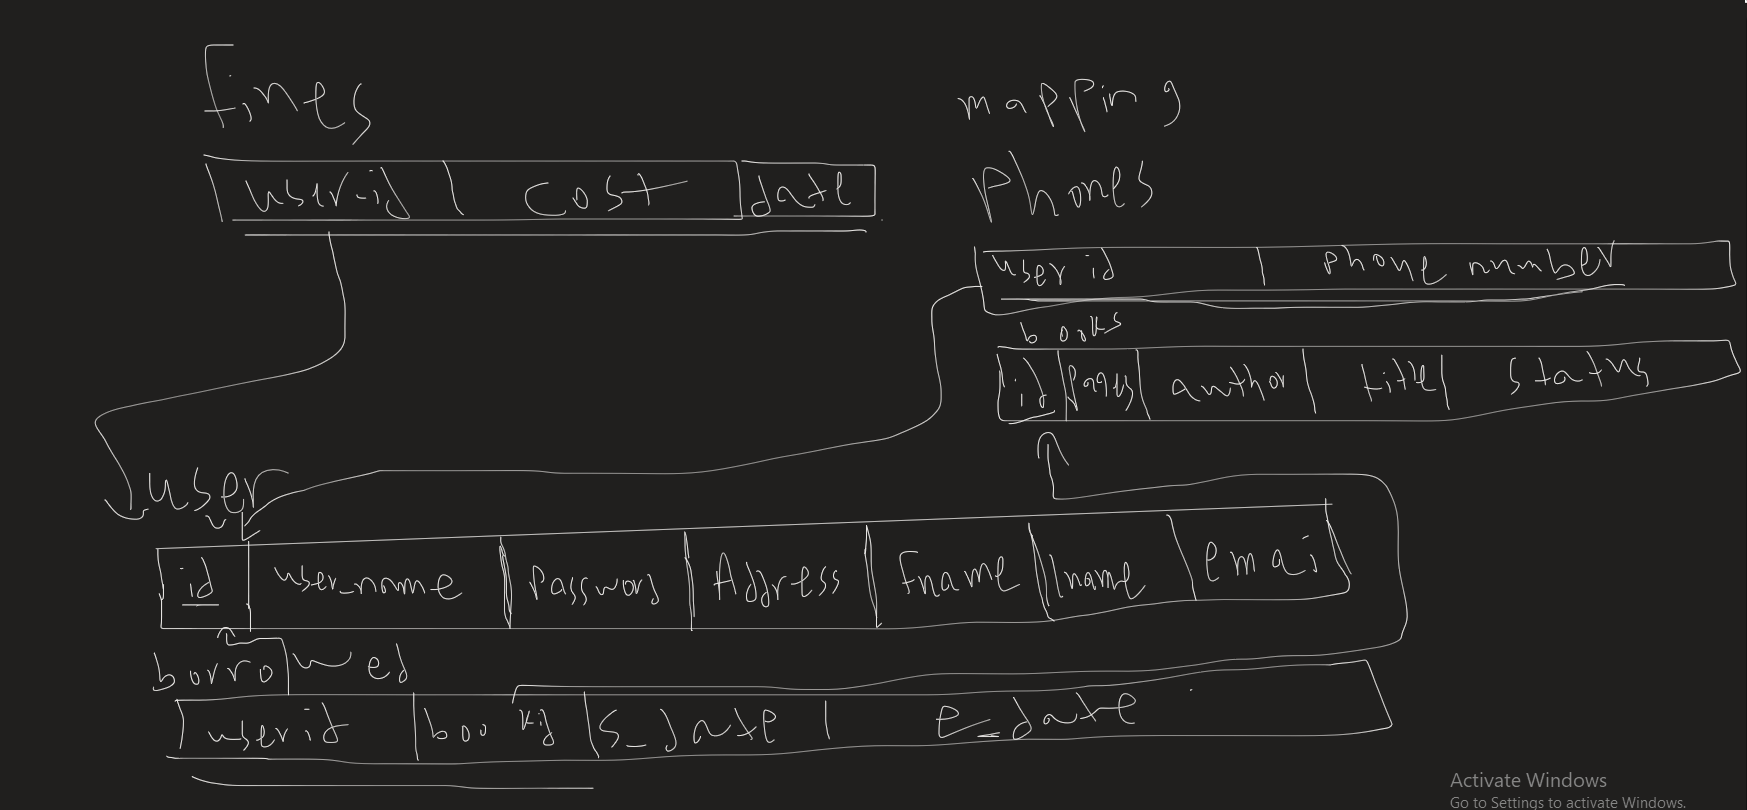 fines
mapping
user-id cost date
Phones
user id phone number
books
id pages author title status
user
id user_name Password Address Fname lname emai
borrowed
userid bookid s_date e_date
Activate Windows
Go to Settings to activate Windows.